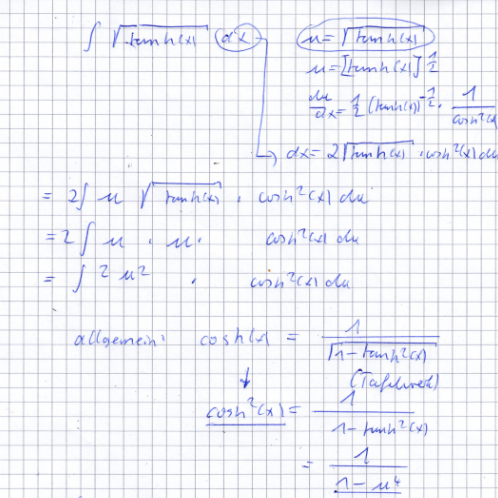 ∫ √tanh(x) dx
u = √tanh(x)
u = [tanh(x)]^(1/2)
du/dx = 1/2 (tanh(x))^(-1/2) · 1/cosh²(x)
→ dx = 2√tanh(x) · cosh²(x) du
= 2∫ u √tanh(x) · cosh²(x) du
= 2 ∫ u · u · cosh²(x) du
= ∫ 2 u² · cosh²(x) du
allgemein: cosh(x) = 1/√(1-tanh²(x))
(Tafelwerk)
↓
cosh²(x) = 1/(1-tanh²(x))
= 1/(1-u⁴)